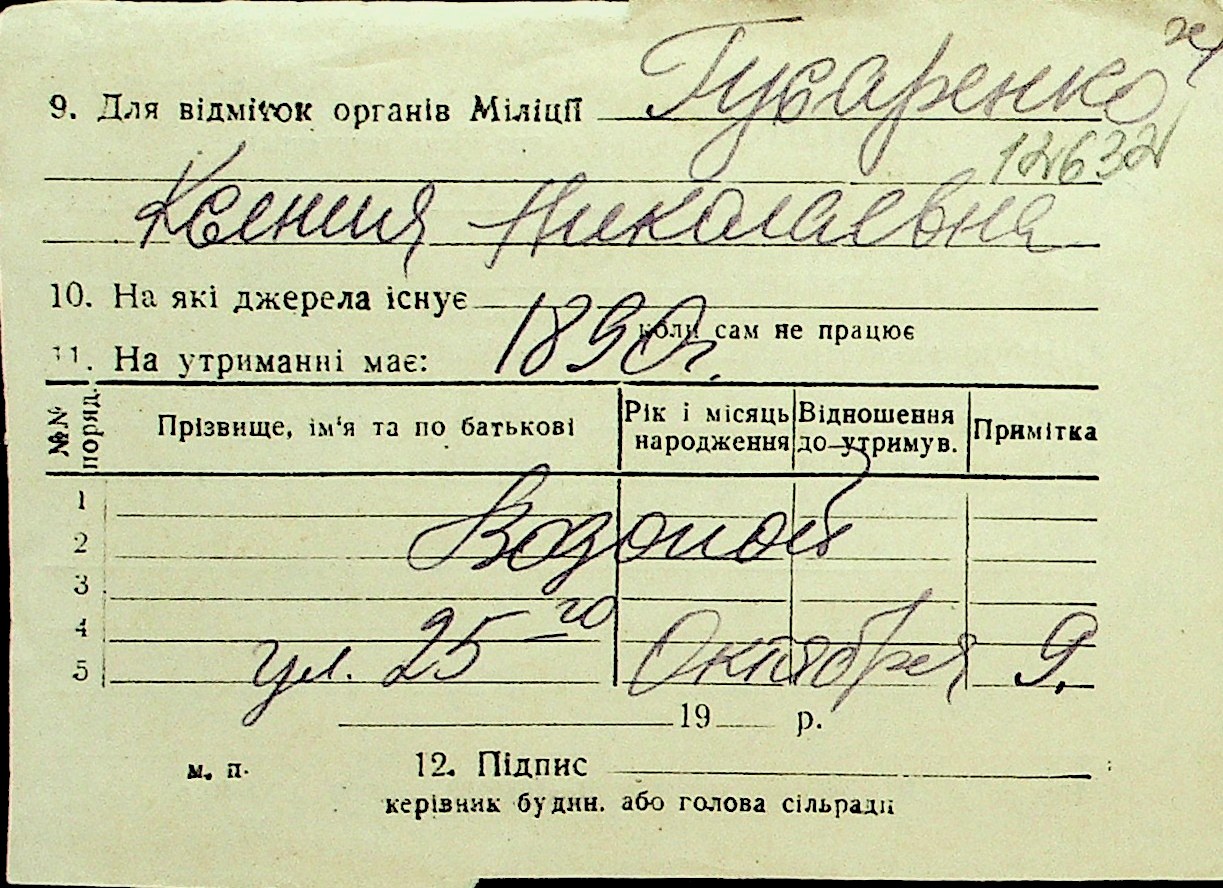 9. Для відміток органів Міліції Гусаренко
12632
Ксения Николаевна
10. На які джерела існує
коли сам не працює
11. На утриманні має: 1890г.
№№ поряд. Прізвище, ім'я та по батькові Рік і місяць народження Відношення до утримув. Примітка
1
2 Водопой
3
4
5 ул. 25-го Октября 9.
19 р.
м. п. 12. Підпис
керівник будин. або голова сільради